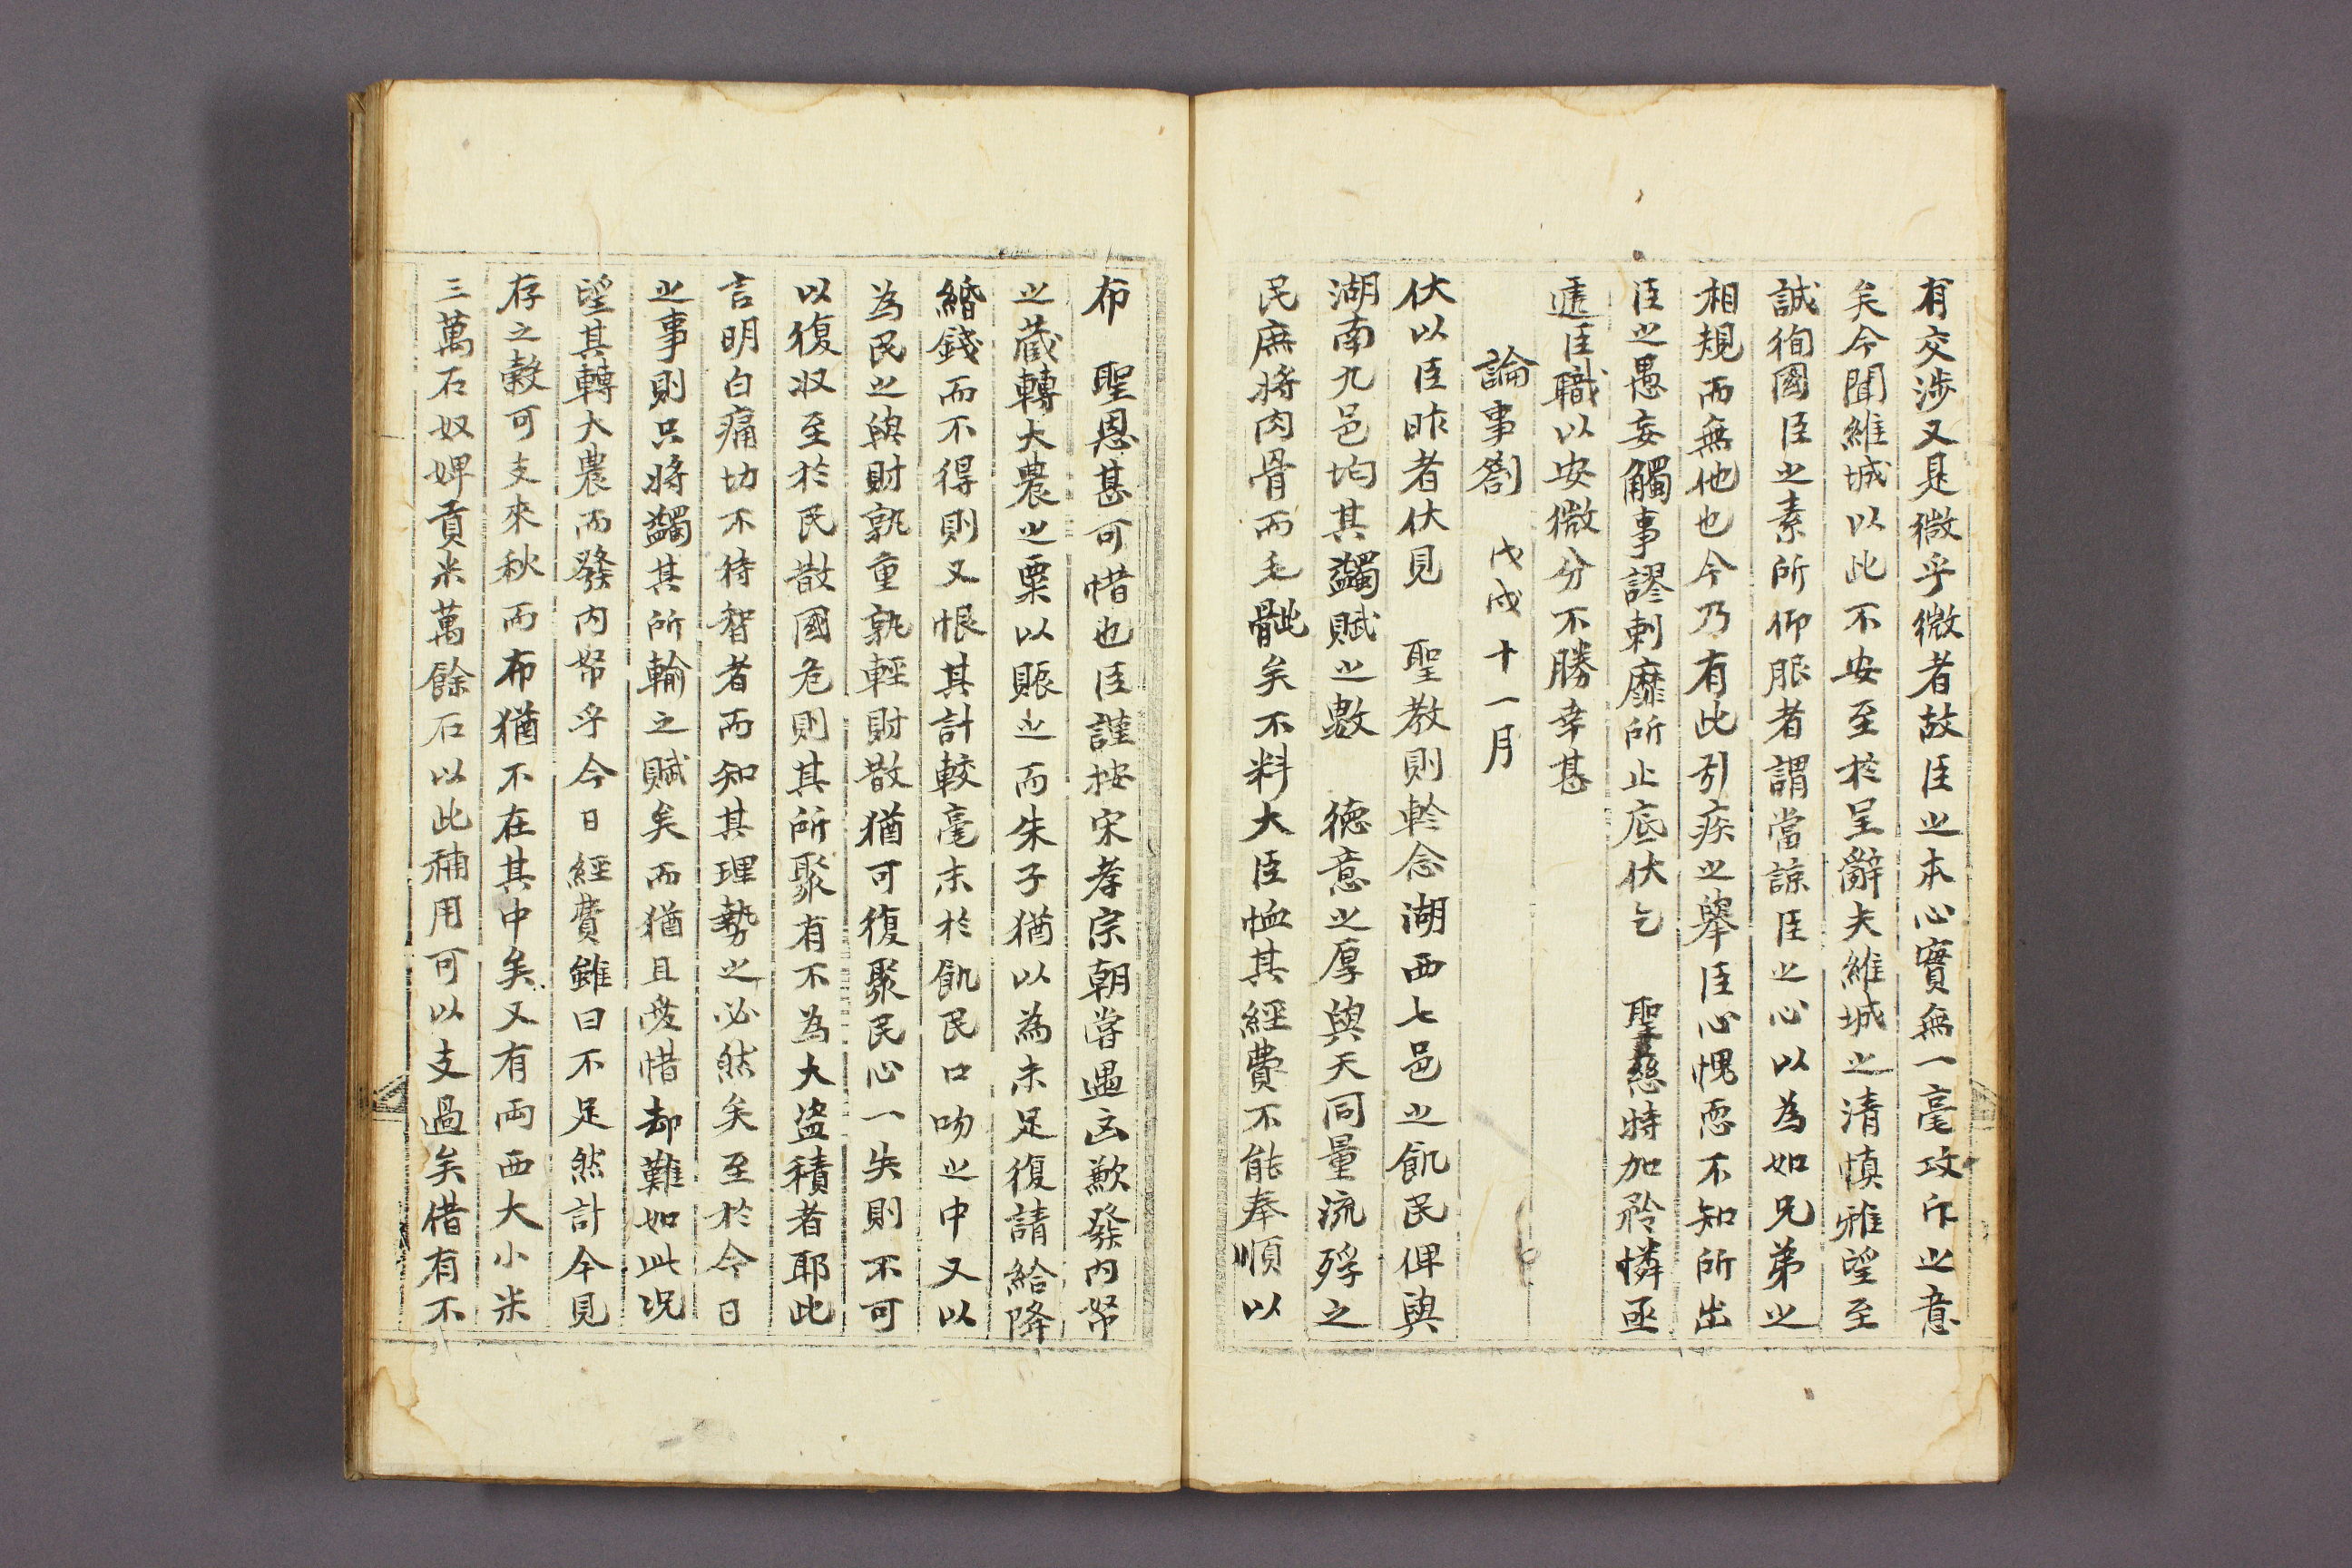 有交涉又是微乎微者故臣之本心實無一毫攻斥之意
矣今聞維城以此不安至於呈辭夫維城之清愼雅望至
誠徇國臣之素所仰服者謂當諒臣之心以為如兄弟之
相規而無他也今乃有此引疾之擧臣心愧恧不知所出
臣之愚妄觸事謬剌靡所止底伏乞　聖慈特加矜憐亟
遞臣職以安微分不勝幸甚
論事劄　戊戌十一月
伏以臣昨者伏見　聖敎則軫念湖西七邑之飢民俾與
湖南九邑均其蠲賦之數　德意之厚與天同量流殍之
民庶將肉骨而毛髊矣不料大臣恤其經費不能奉順以
布　聖恩甚可惜也臣謹按宋孝宗朝嘗遇凶歉發內帑
之藏轉大農之粟以賑之而朱子猶以為未足復請給降
緡錢而不得則又恨其計較毫末於飢民口吻之中又以
為民之與財孰重孰輕財散猶可復聚民心一失則不可
以復收至於民散國危則其所聚有不為大盜積者耶此
言明白痛切不待智者而知其理勢之必然矣至於今日
之事則只將蠲其所輸之賦矣而猶且愛惜却難如此况
望其轉大農而發內帑乎今日經費雖曰不足然計今見
存之穀可支來秋而布猶不在其中矣又有兩西大小米
三萬石奴婢貢米萬餘石以此補用可以支過矣借有不